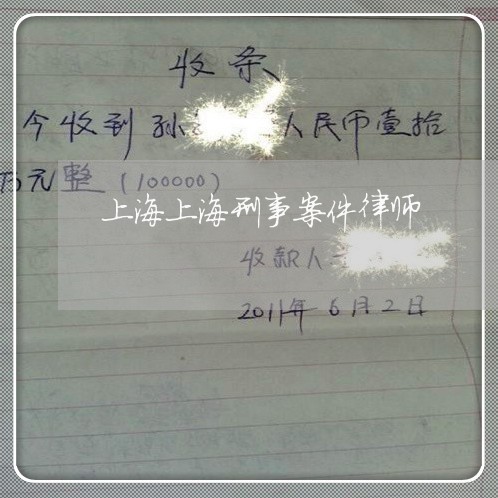 收条
今收到孙 人民币壹拾
万元整(100000)
上海上海刑事案件律师
收款人
2011年6月2日